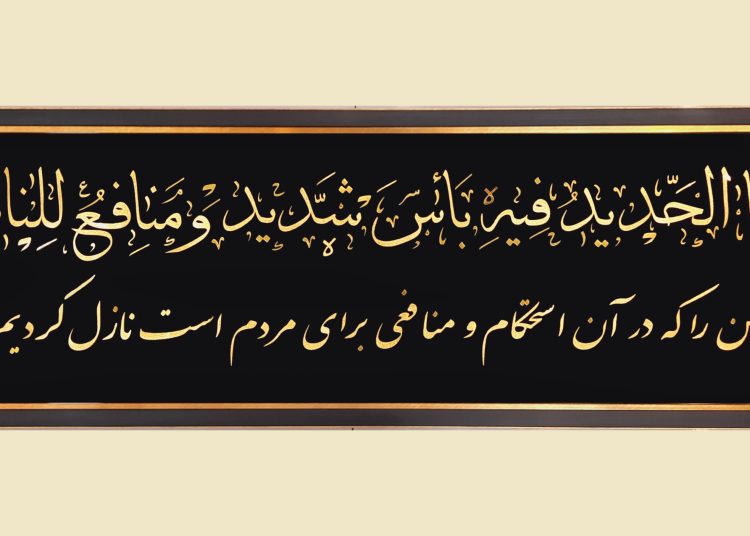 ا الحَدِيدُ فِيهِ بَأسَ شَدِيد وَ مَنافِعُ لِلنا
ن را که در آن استحکام و منافعی برای مردم است نازل کردیم